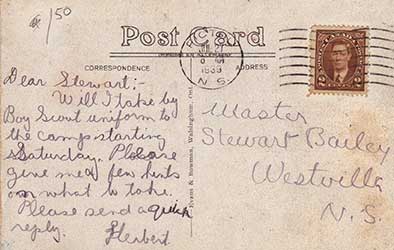 1/50
Post Card
CORRESPONDENCE
ADDRESS
PICTOU
1939
N.S.
CANADA
2 2
Dear Stewart;-
Will I take by
Boy Scout uniform to
the camp starting
Saturday. Please
give me a few hints
on what to take.
Please send a quick
reply. Herbert
Evans & Bowman, Walsingham, Ont.
Master
Stewart Bailey
Westville
N.S.